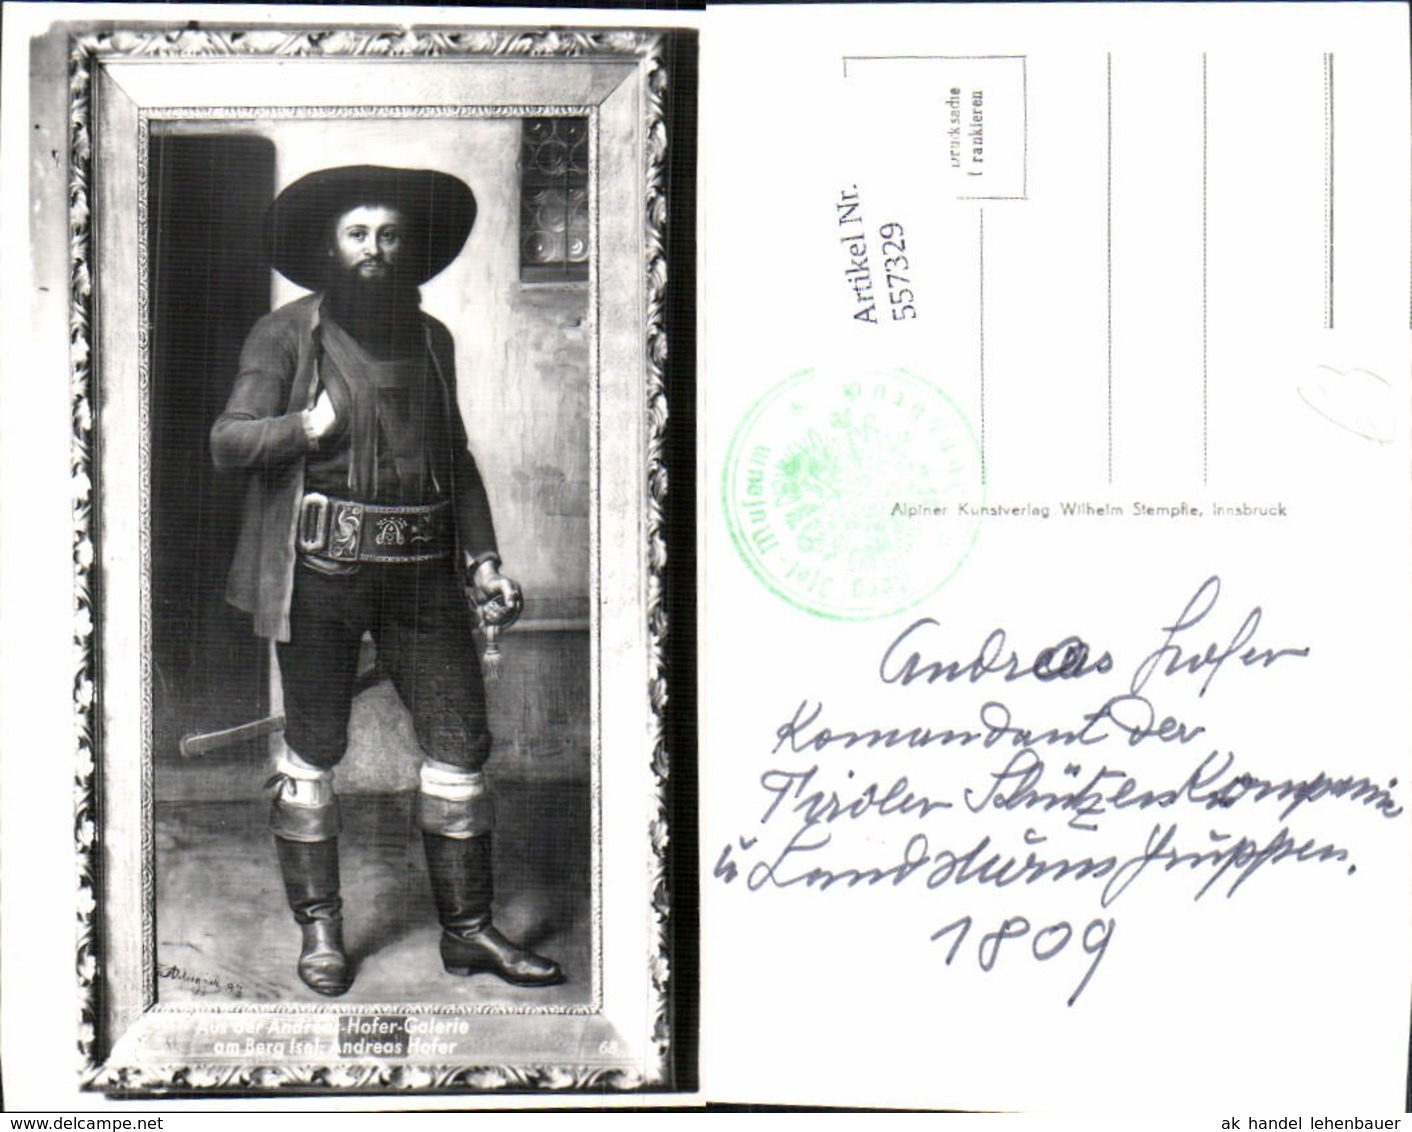 Aus der Andreas-Hofer-Galerie
am Berg Isel: Andreas Hofer
68
Drucksache
frankieren
Artikel Nr.
557329
Berg Isel-Museum
Alpiner Kunstverlag Wilhelm Stempfle, Innsbruck
Andreas Hofer
Komandant der
Tiroler Schützen Kompanie
u Landsturmsgruppen.
1809
www.delcampe.net
ak handel lehenbauer